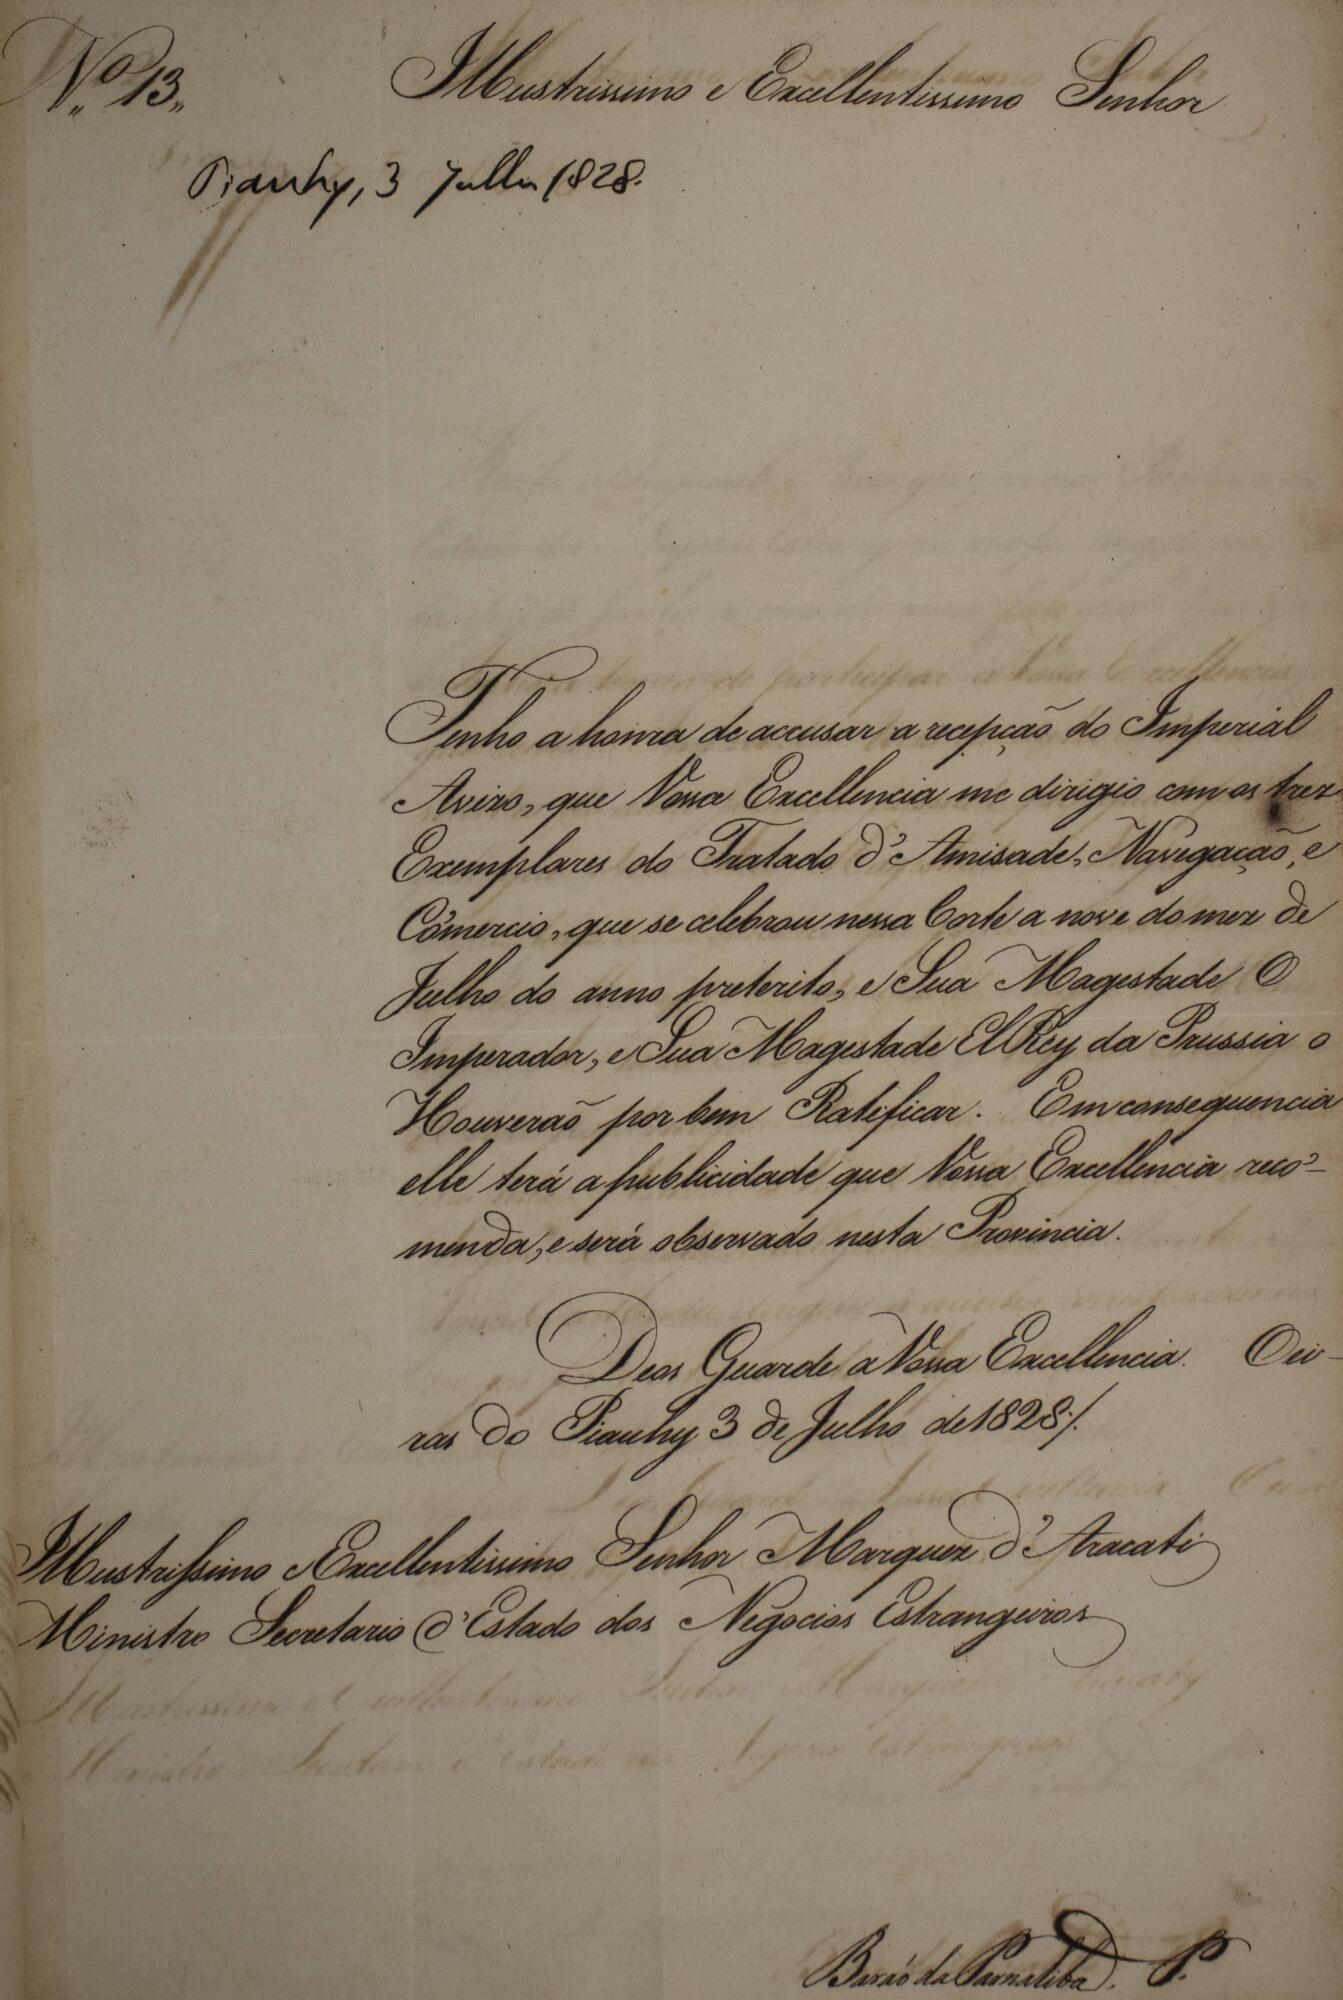 Nº 13
Illustrissimo e Excellentissimo Senhor
Piauhy, 3 Julho 1828.
Tenho a honra de accusar a recepção do Imperial
Avizo, que Vossa Excellencia me dirigio com os trez
Exemplares do Tratado d'Amisade, Navegação, e
Cõmercio, que se celebrou nessa Corte a nove do mez de
Julho do anno preterito, e Sua Magestade O
Imperador, e Sua Magestade El Rey da Prussia o
Houverão por bem Ratificar. Em consequencia
elle terá a publicidade que Vossa Excellencia reco-
menda, e será observado nesta Provincia.
Deos Guarde a Vossa Excellencia. Oei-
ras do Piauhy 3 de Julho de 1828./.
Illustrissimo e Excellentissimo Senhor Marquez d'Aracati
Ministro Secretario d'Estado dos Negocios Estrangeiros
Barão da Parnaiba. P.